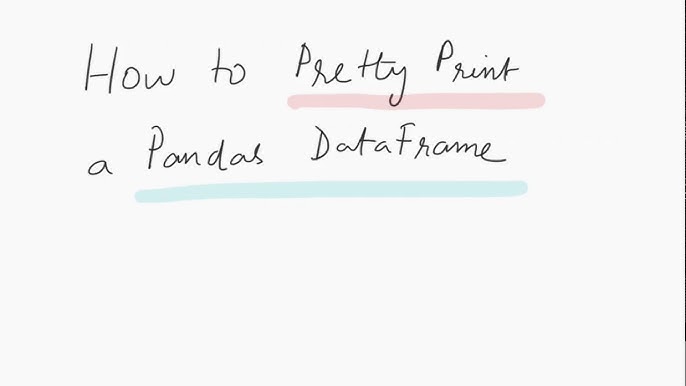 How to Pretty Print
a Pandas DataFrame